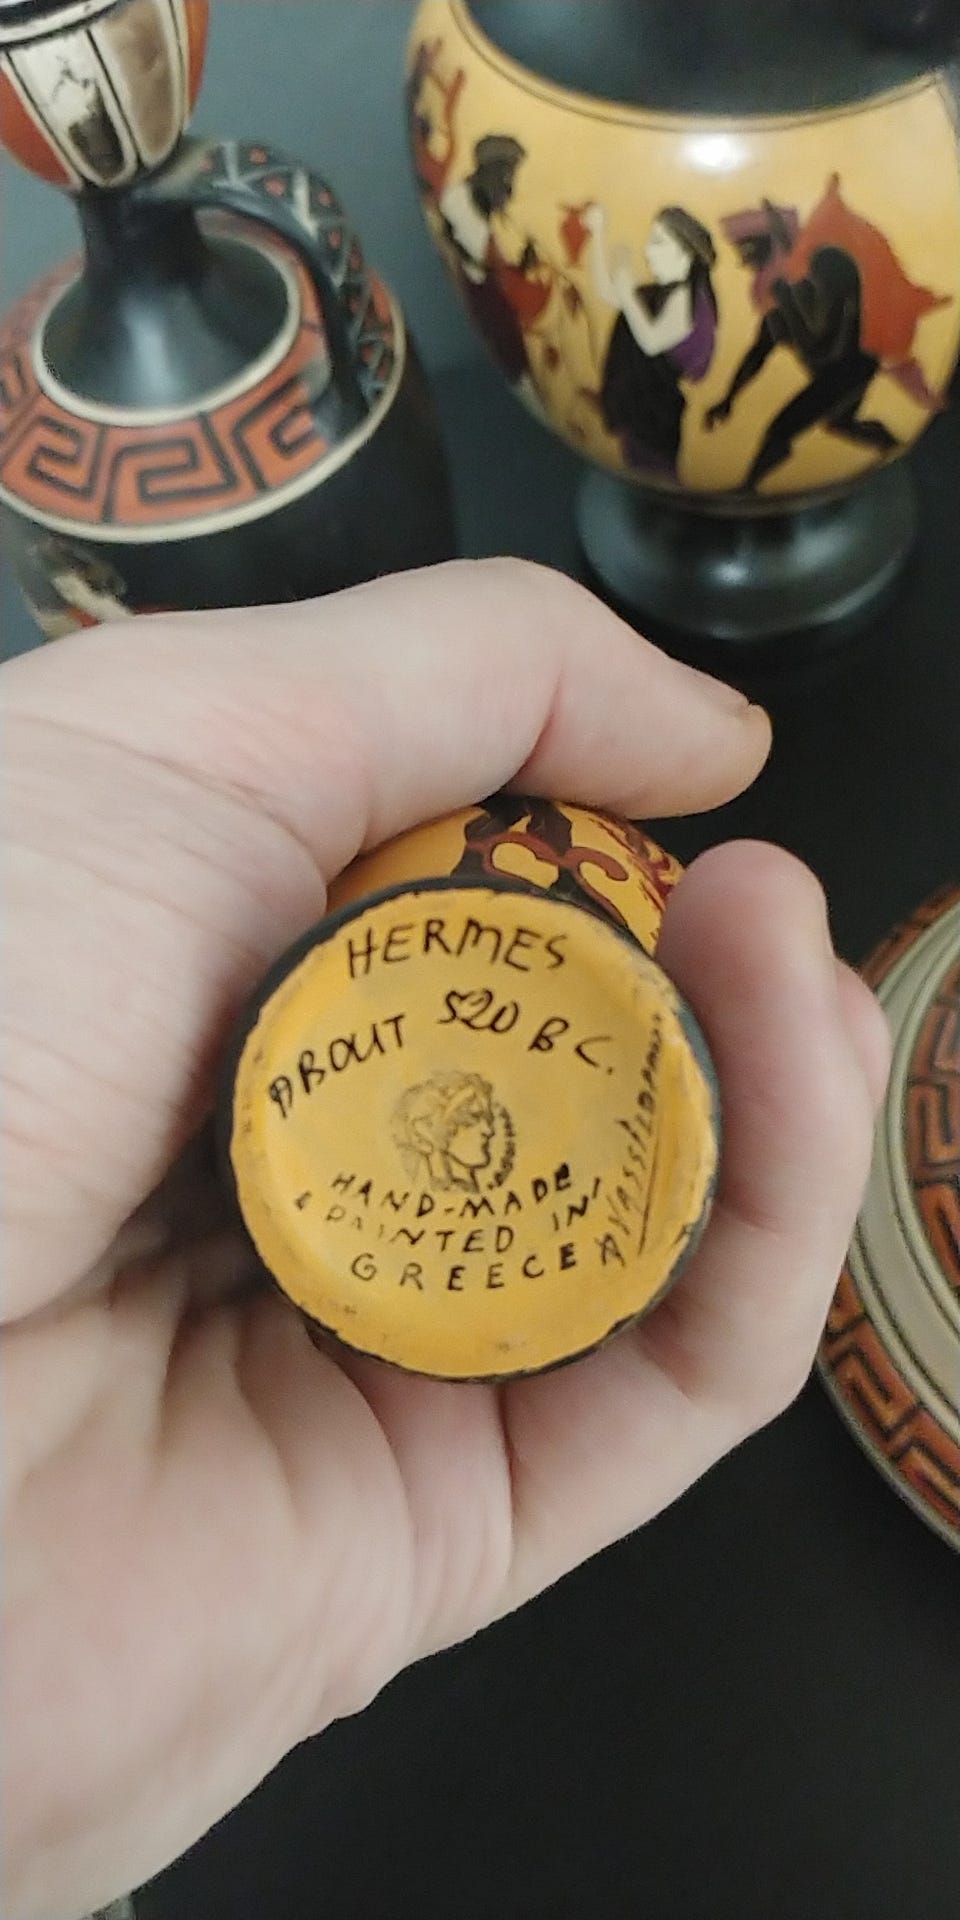 HERMES
ABOUT 520 B C.
HAND-MADE
& PAINTED IN
GREECE